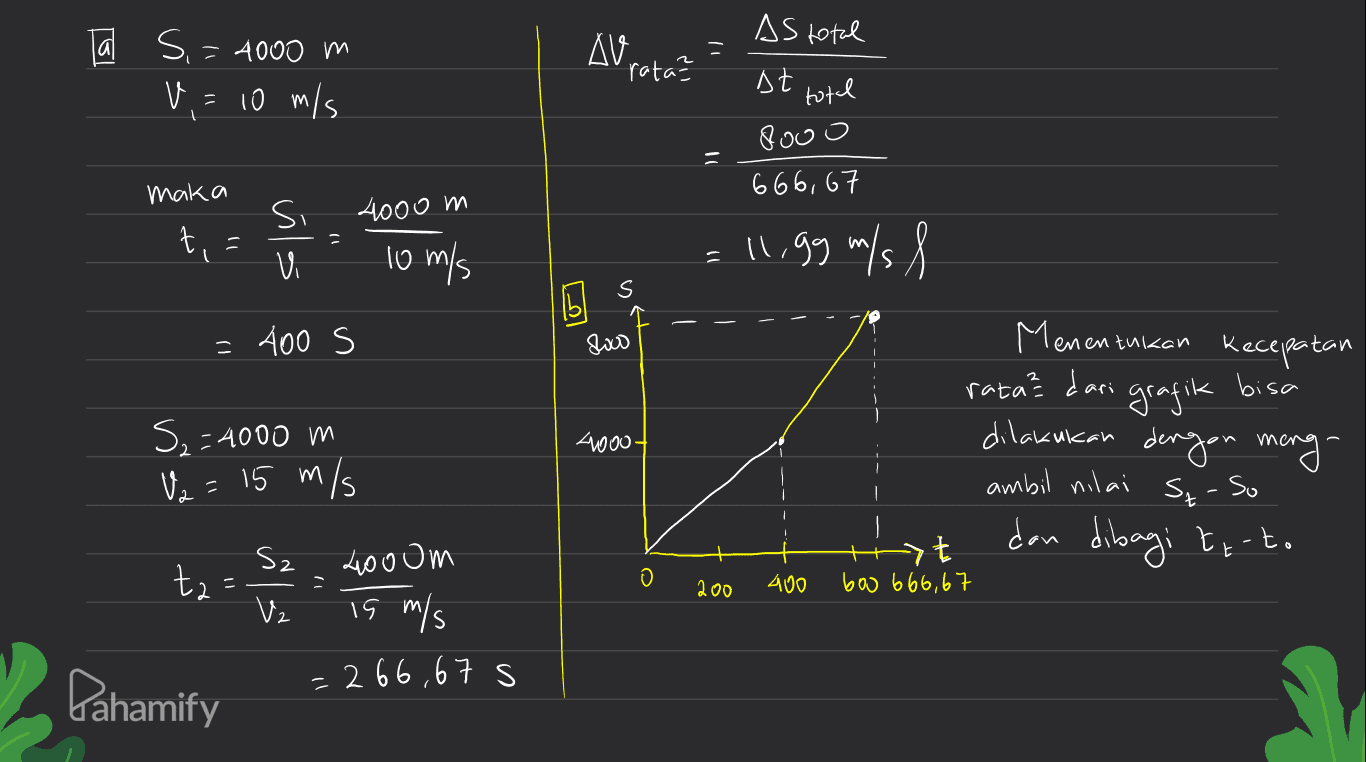 a S₁ = 4000 m
V₁ = 10 m/s
maka
t₁ = S₁/V₁ = 4000 m / 10 m/s
= 400 s
S₂ = 4000 m
V₂ = 15 m/s
t₂ = S₂/V₂ = 4000 m / 15 m/s
= 266,67 s
ΔV rata² = ΔS total / Δt total
= 8000 / 666,67
= 11,99 m/s
b
S
8000
4000
0 200 400 600 666,67
t
Menentukan kecepatan
rata² dari grafik bisa
dilakukan dengan meng-
ambil nilai Sₜ - S₀
dan dibagi tₜ - t₀
Pahamify